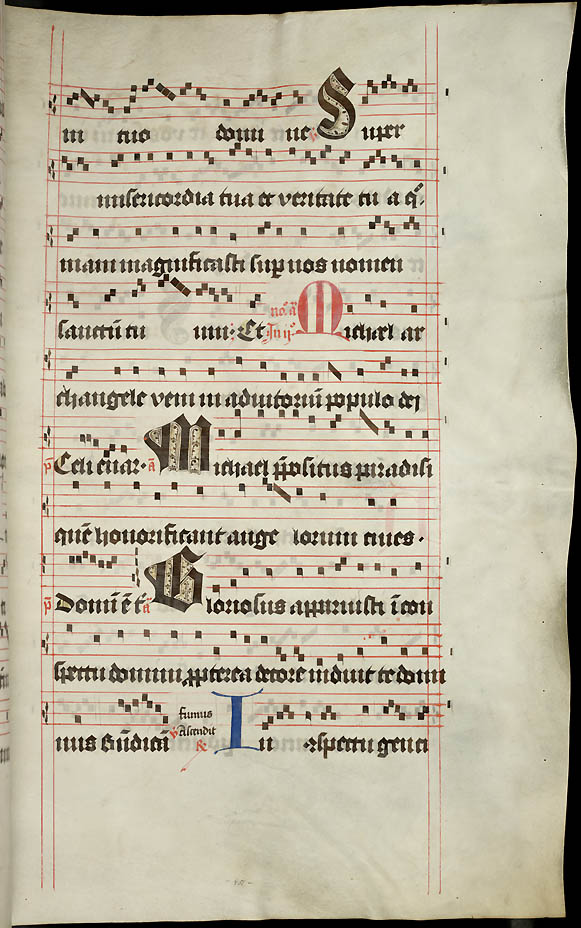 in tuo domi ne Super
misericordia tua et veritate tu a q̄
niam magnificasti sup nos nomen
sanctū tu um. Et Michael ar
changele veni in adiutoriū populo dei
Celi enar. a Michael p̄positus paradisi
quē honorificant ange lorum ciues.
Domū ē t̄ a Gloriosus apparuisti ī con
spectu domini ppterea decore induit te domi
nus Bn̄dicā fumus Ascendit In conspectu genti